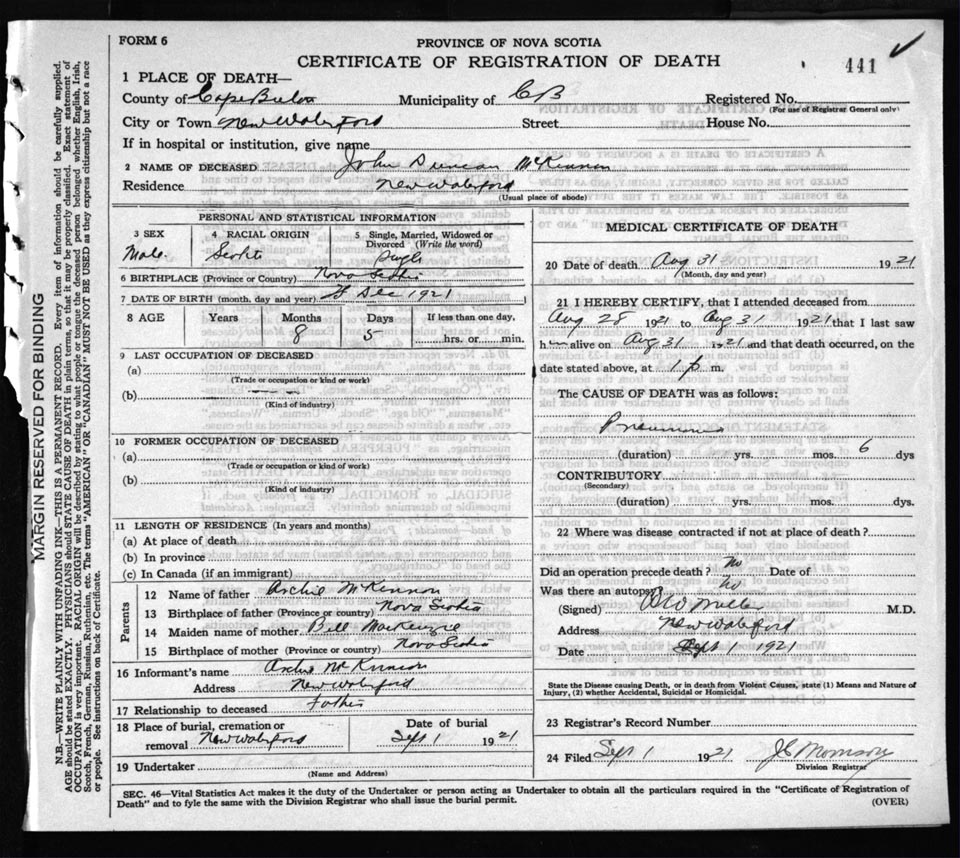 FORM 6
PROVINCE OF NOVA SCOTIA
CERTIFICATE OF REGISTRATION OF DEATH
441
1 PLACE OF DEATH—
County of Cape Breton Municipality of CB Registered No.
(For use of Registrar General only)
City or Town New Waterford Street House No.
If in hospital or institution, give name
2 NAME OF DECEASED John Duncan McKinnon
Residence New Waterford
(Usual place of abode)
PERSONAL AND STATISTICAL INFORMATION
3 SEX 4 RACIAL ORIGIN 5 Single, Married, Widowed or Divorced (Write the word)
Male Scotch Single
6 BIRTHPLACE (Province or Country) Nova Scotia
7 DATE OF BIRTH (month, day and year) Dec 1921
8 AGE Years Months Days If less than one day,
8 5 hrs. or min.
9 LAST OCCUPATION OF DECEASED
(a)
(Trade or occupation or kind or work)
(b)
(Kind of industry)
10 FORMER OCCUPATION OF DECEASED
(a)
(Trade or occupation or kind of work)
(b)
(Kind of industry)
11 LENGTH OF RESIDENCE (In years and months)
(a) At place of death
(b) In province
(c) In Canada (if an immigrant)
Parents
12 Name of father Archie McKinnon
13 Birthplace of father (Province or country) Nova Scotia
14 Maiden name of mother MacKenzie
15 Birthplace of mother (Province or country) Nova Scotia
16 Informant's name Archie McKinnon
Address New Waterford
17 Relationship to deceased father
18 Place of burial, cremation or removal New Waterford
Date of burial
Sept 1 1921
19 Undertaker
(Name and Address)
MEDICAL CERTIFICATE OF DEATH
20 Date of death Aug 31 1921
(Month, day and year)
21 I HEREBY CERTIFY, that I attended deceased from
Aug 28 1921 to Aug 31 1921 that I last saw
him alive on Aug 31 1921 and that death occurred, on the
date stated above, at 1 p. m.
The CAUSE OF DEATH was as follows:
Pneumonia
(duration) yrs. mos. 6 dys
CONTRIBUTORY
(Secondary)
(duration) yrs. mos. dys.
22 Where was disease contracted if not at place of death?
Did an operation precede death? No Date of
Was there an autopsy? No
(Signed) M.D.
Address New Waterford
Date Sept 1 1921
State the Disease causing Death, or in death from Violent Causes, state (1) Means and Nature of
Injury, (2) whether Accidental, Suicidal or Homicidal.
23 Registrar's Record Number
24 Filed Sept 1 1921 Morrison
Division Registrar
SEC. 46—Vital Statistics Act makes it the duty of the Undertaker or person acting as Undertaker to obtain all the particulars required in the "Certificate of Registration of
Death" and to fyle the same with the Division Registrar who shall issue the burial permit.
(OVER)
MARGIN RESERVED FOR BINDING
N.B.—WRITE PLAINLY WITH UNFADING INK—THIS IS A PERMANENT RECORD. Every item of information should be carefully supplied.
AGE should be stated EXACTLY. PHYSICIANS should STATE CAUSE OF DEATH in plain terms, so that it may be properly classified. Exact statement of
OCCUPATION is very important. RACIAL ORIGIN will be described by stating to what people or tongue the deceased person belonged, whether English, Irish,
Scotch, French, German, Russian, Ruthenian, etc. The terms "AMERICAN" OR "CANADIAN" MUST NOT BE USED as they express citizenship but not a race
or people. See instructions on back of Certificate.